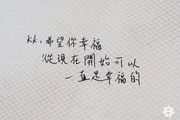 kk,希望你幸福
從現在開始可以
一直是幸福的